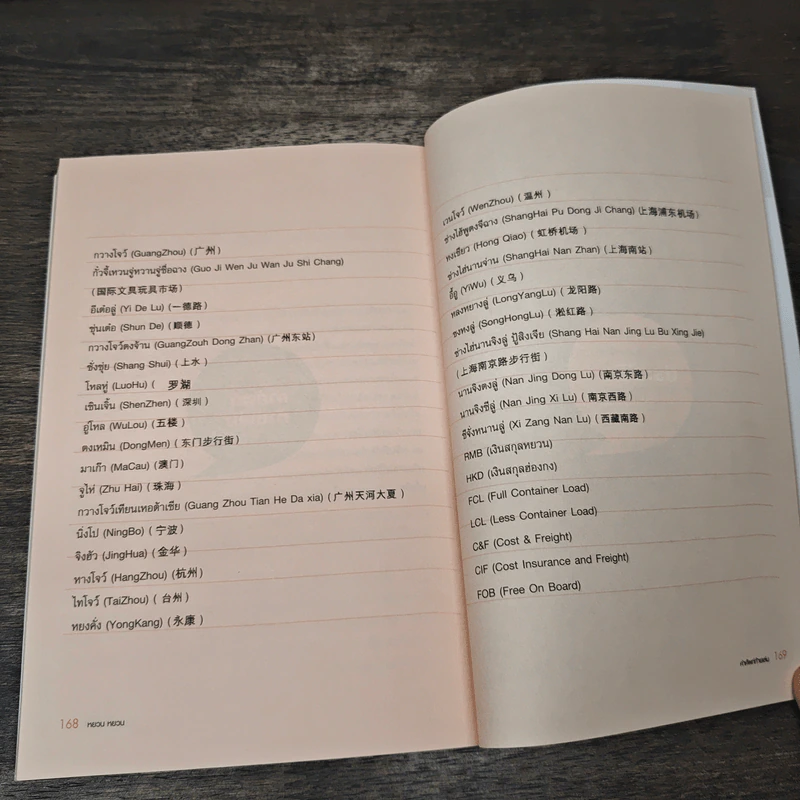 กวางโจว์ (GuangZhou) (广州)
กั๋วจี้เหวนจู่หวานจู่ซื่อฉาง (Guo Ji Wen Ju Wan Ju Shi Chang)
(国际文具玩具市场)
อีเต๋อลู่ (Yi De Lu) (一德路)
ชุ่นเต๋อ (Shun De) (顺德)
กวางโจว์ตงจ้าน (GuangZouh Dong Zhan) (广州东站)
ซั่งซุ่ย (Shang Shui) (上水)
โหลหู่ (LuoHu) ( 罗湖
เซินเจิ้น (ShenZhen) (深圳)
อู่โหล (WuLou) (五楼)
ตงเหมิน (DongMen) (东门步行街)
มาเก๊า (MaCau) (澳门)
จูไห่ (Zhu Hai) (珠海)
กวางโจว์เทียนเหอต้าเซี่ย (Guang Zhou Tian He Da xia) (广州天河大夏)
นิ่งโป (NingBo) (宁波)
จิงฮัว (JingHua) (金华)
หางโจว์ (HangZhou) (杭州)
ไทโจว์ (TaiZhou) (台州)
หยงคั่ง (YongKang) (永康)
168 หยวน หยวน
เวนโจว์ (WenZhou) (温州)
ช่างไฮ้พูตงจีฉาง (ShangHai Pu Dong Ji Chang) (上海浦东机场)
หงเชียว (Hong Qiao) (虹桥机场)
ช่างไฮ่นานจ่าน (ShangHai Nan Zhan) (上海南站)
อี้อู (YiWu) (义乌)
หลงหยางลู่ (LongYangLu) (龙阳路)
ซงหงลู่ (SongHongLu) (淞红路)
ช่างไฮ่นานจิงลู่ ปู้สิงเจีย (Shang Hai Nan Jing Lu Bu Xing Jie)
(上海南京路步行街)
นานจิงตงลู่ (Nan Jing Dong Lu) (南京东路)
นานจิงซีลู่ (Nan Jing Xi Lu) (南京西路)
ซีจั้งหนานลู่ (Xi Zang Nan Lu) (西藏南路)
RMB (เงินสกุลหยวน)
HKD (เงินสกุลฮ่องกง)
FCL (Full Container Load)
LCL (Less Container Load)
C&F (Cost & Freight)
CIF (Cost Insurance and Freight)
FOB (Free On Board)
คำศัพท์ท้ายเล่ม 169